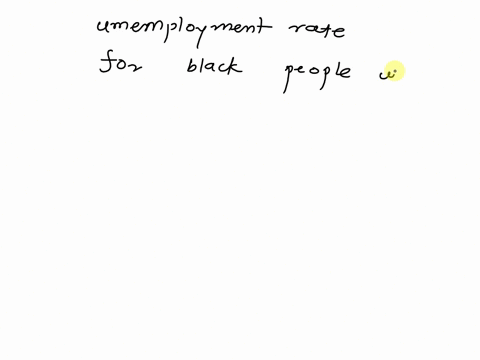 unemployment rate
for black people wi